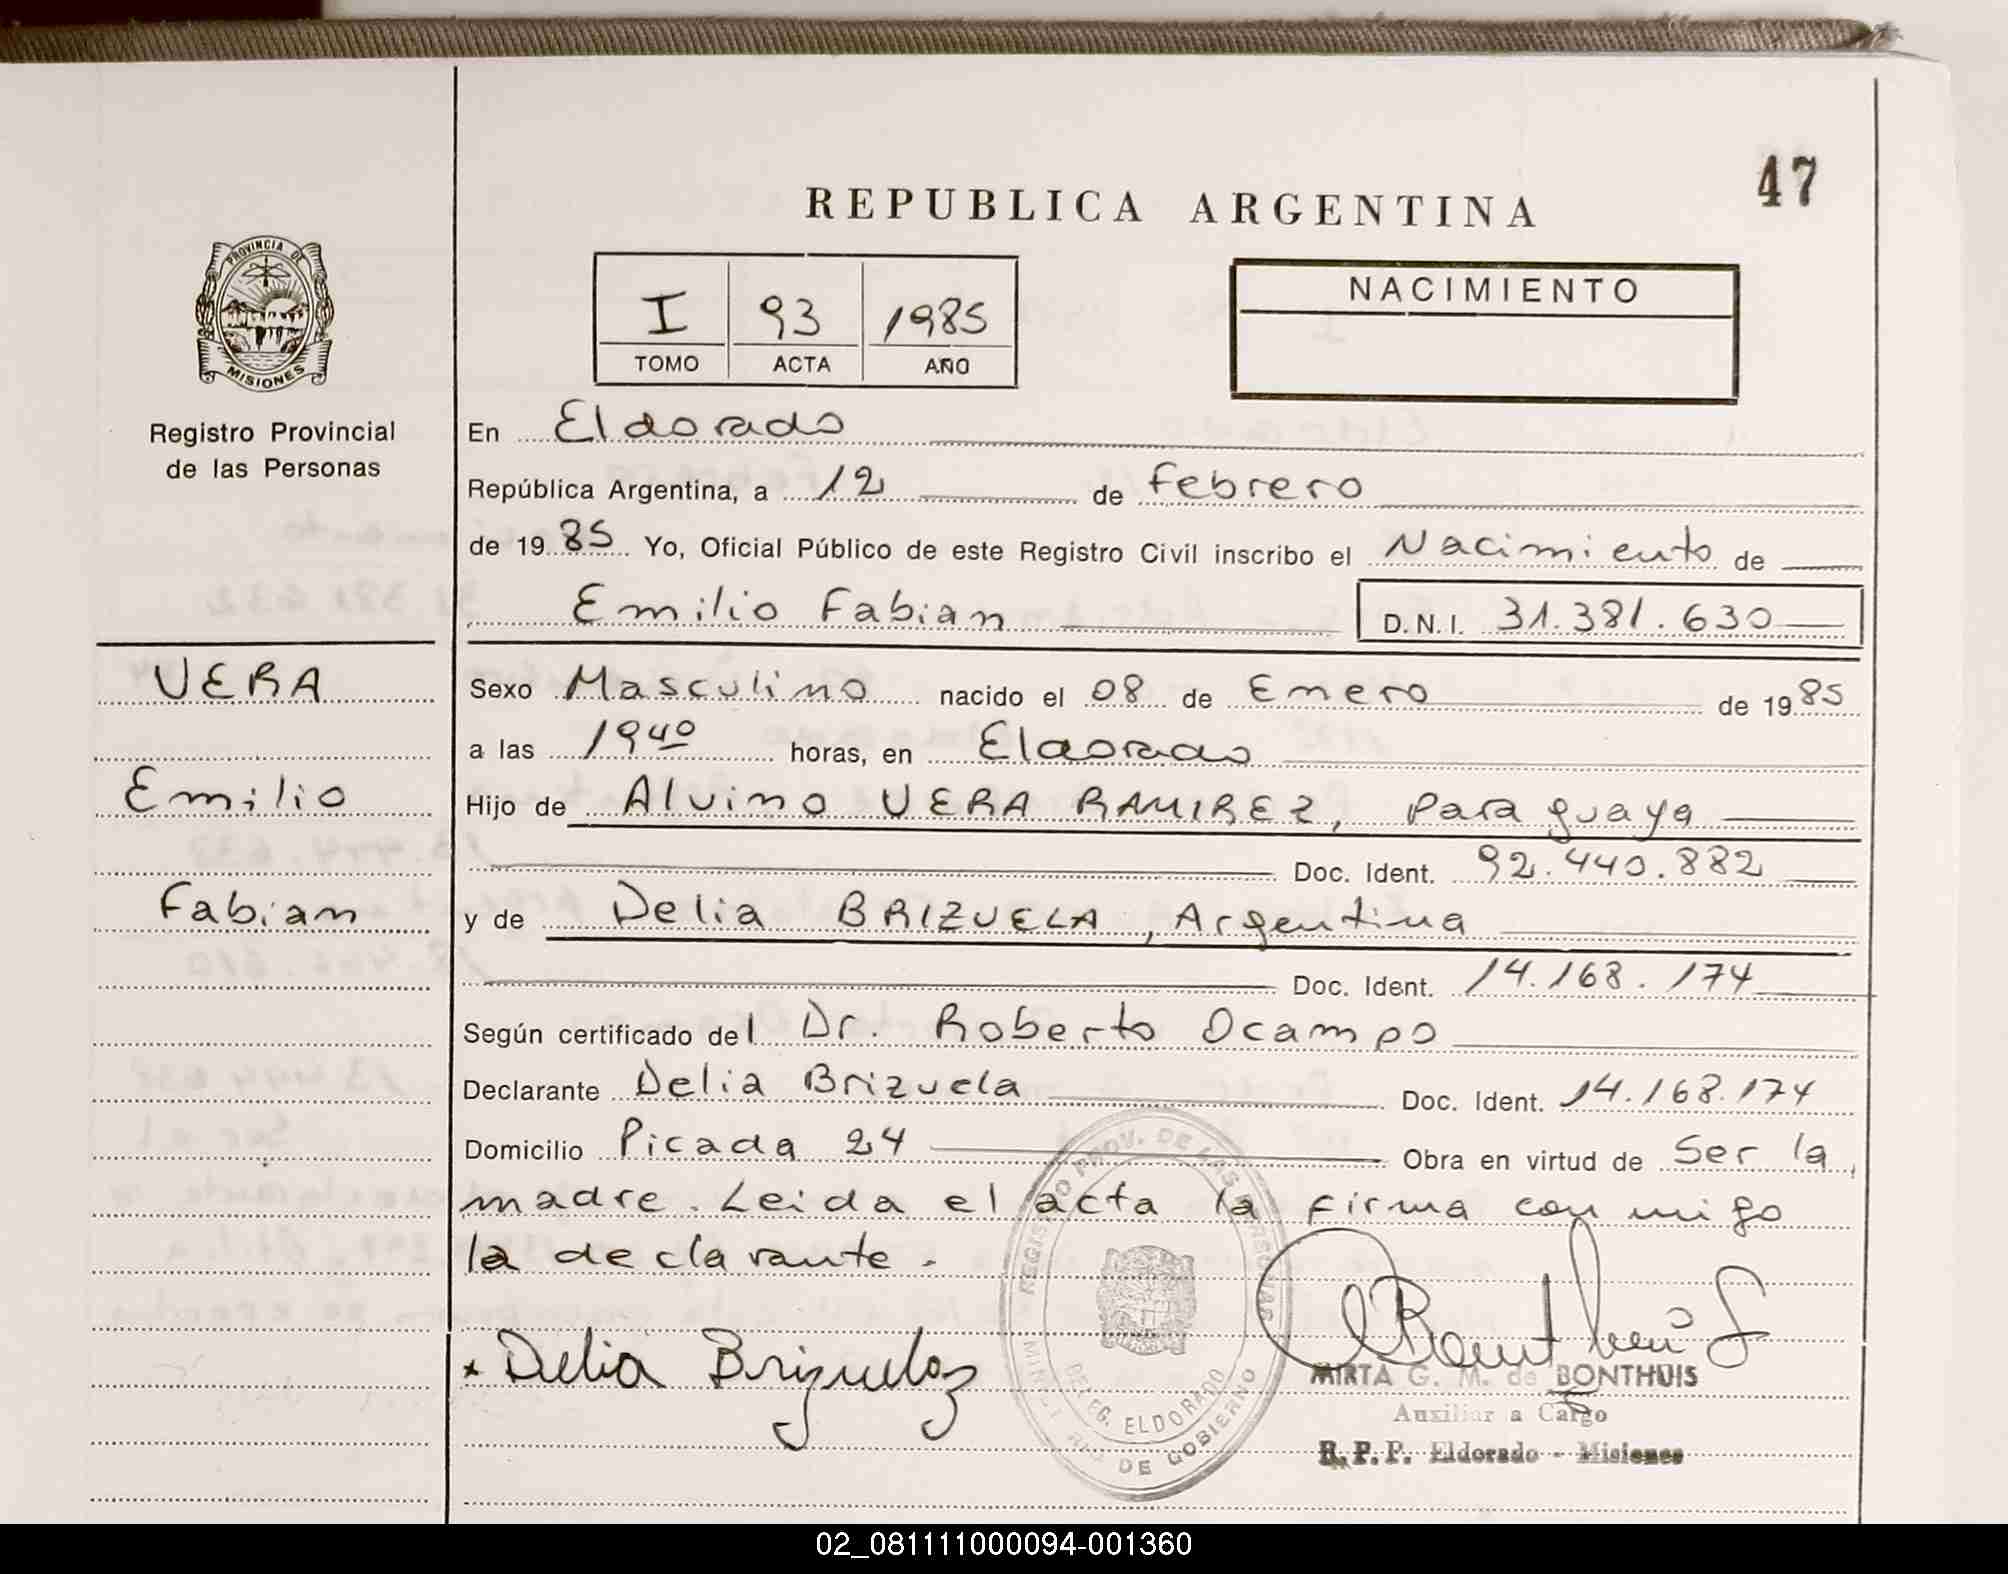 47
REPUBLICA ARGENTINA
PROVINCIA DE
MISIONES
Registro Provincial
de las Personas
I 93 1985
TOMO ACTA AÑO
NACIMIENTO
En Eldorado
República Argentina, a 12 de Febrero
de 19 85 Yo, Oficial Público de este Registro Civil inscribo el Nacimiento de
Emilio Fabian D.N.I. 31.381.630
VERA
Emilio
Fabian
Sexo Masculino nacido el 08 de Enero de 19 85
a las 19 40 horas, en Eldorado
Hijo de Alvino VERA RAMIREZ, Paraguaya
Doc. Ident. 92.440.882
y de Delia BRIZUELA, Argentina
Doc. Ident. 14.168.174
Según certificado del Dr. Roberto Ocampo
Declarante Delia Brizuela Doc. Ident. 14.168.174
Domicilio Picada 24 Obra en virtud de Ser la
madre. Leida el acta la firma con migo
la declarante.
Delia Brizuela
REGISTRO PROV. DE LAS PERSONAS
DELEG. ELDORADO
MINISTERIO DE GOBIERNO
MIRTA G. M. de BONTHUIS
Auxiliar a Cargo
R.P.P. Eldorado - Misiones
02_081111000094-001360